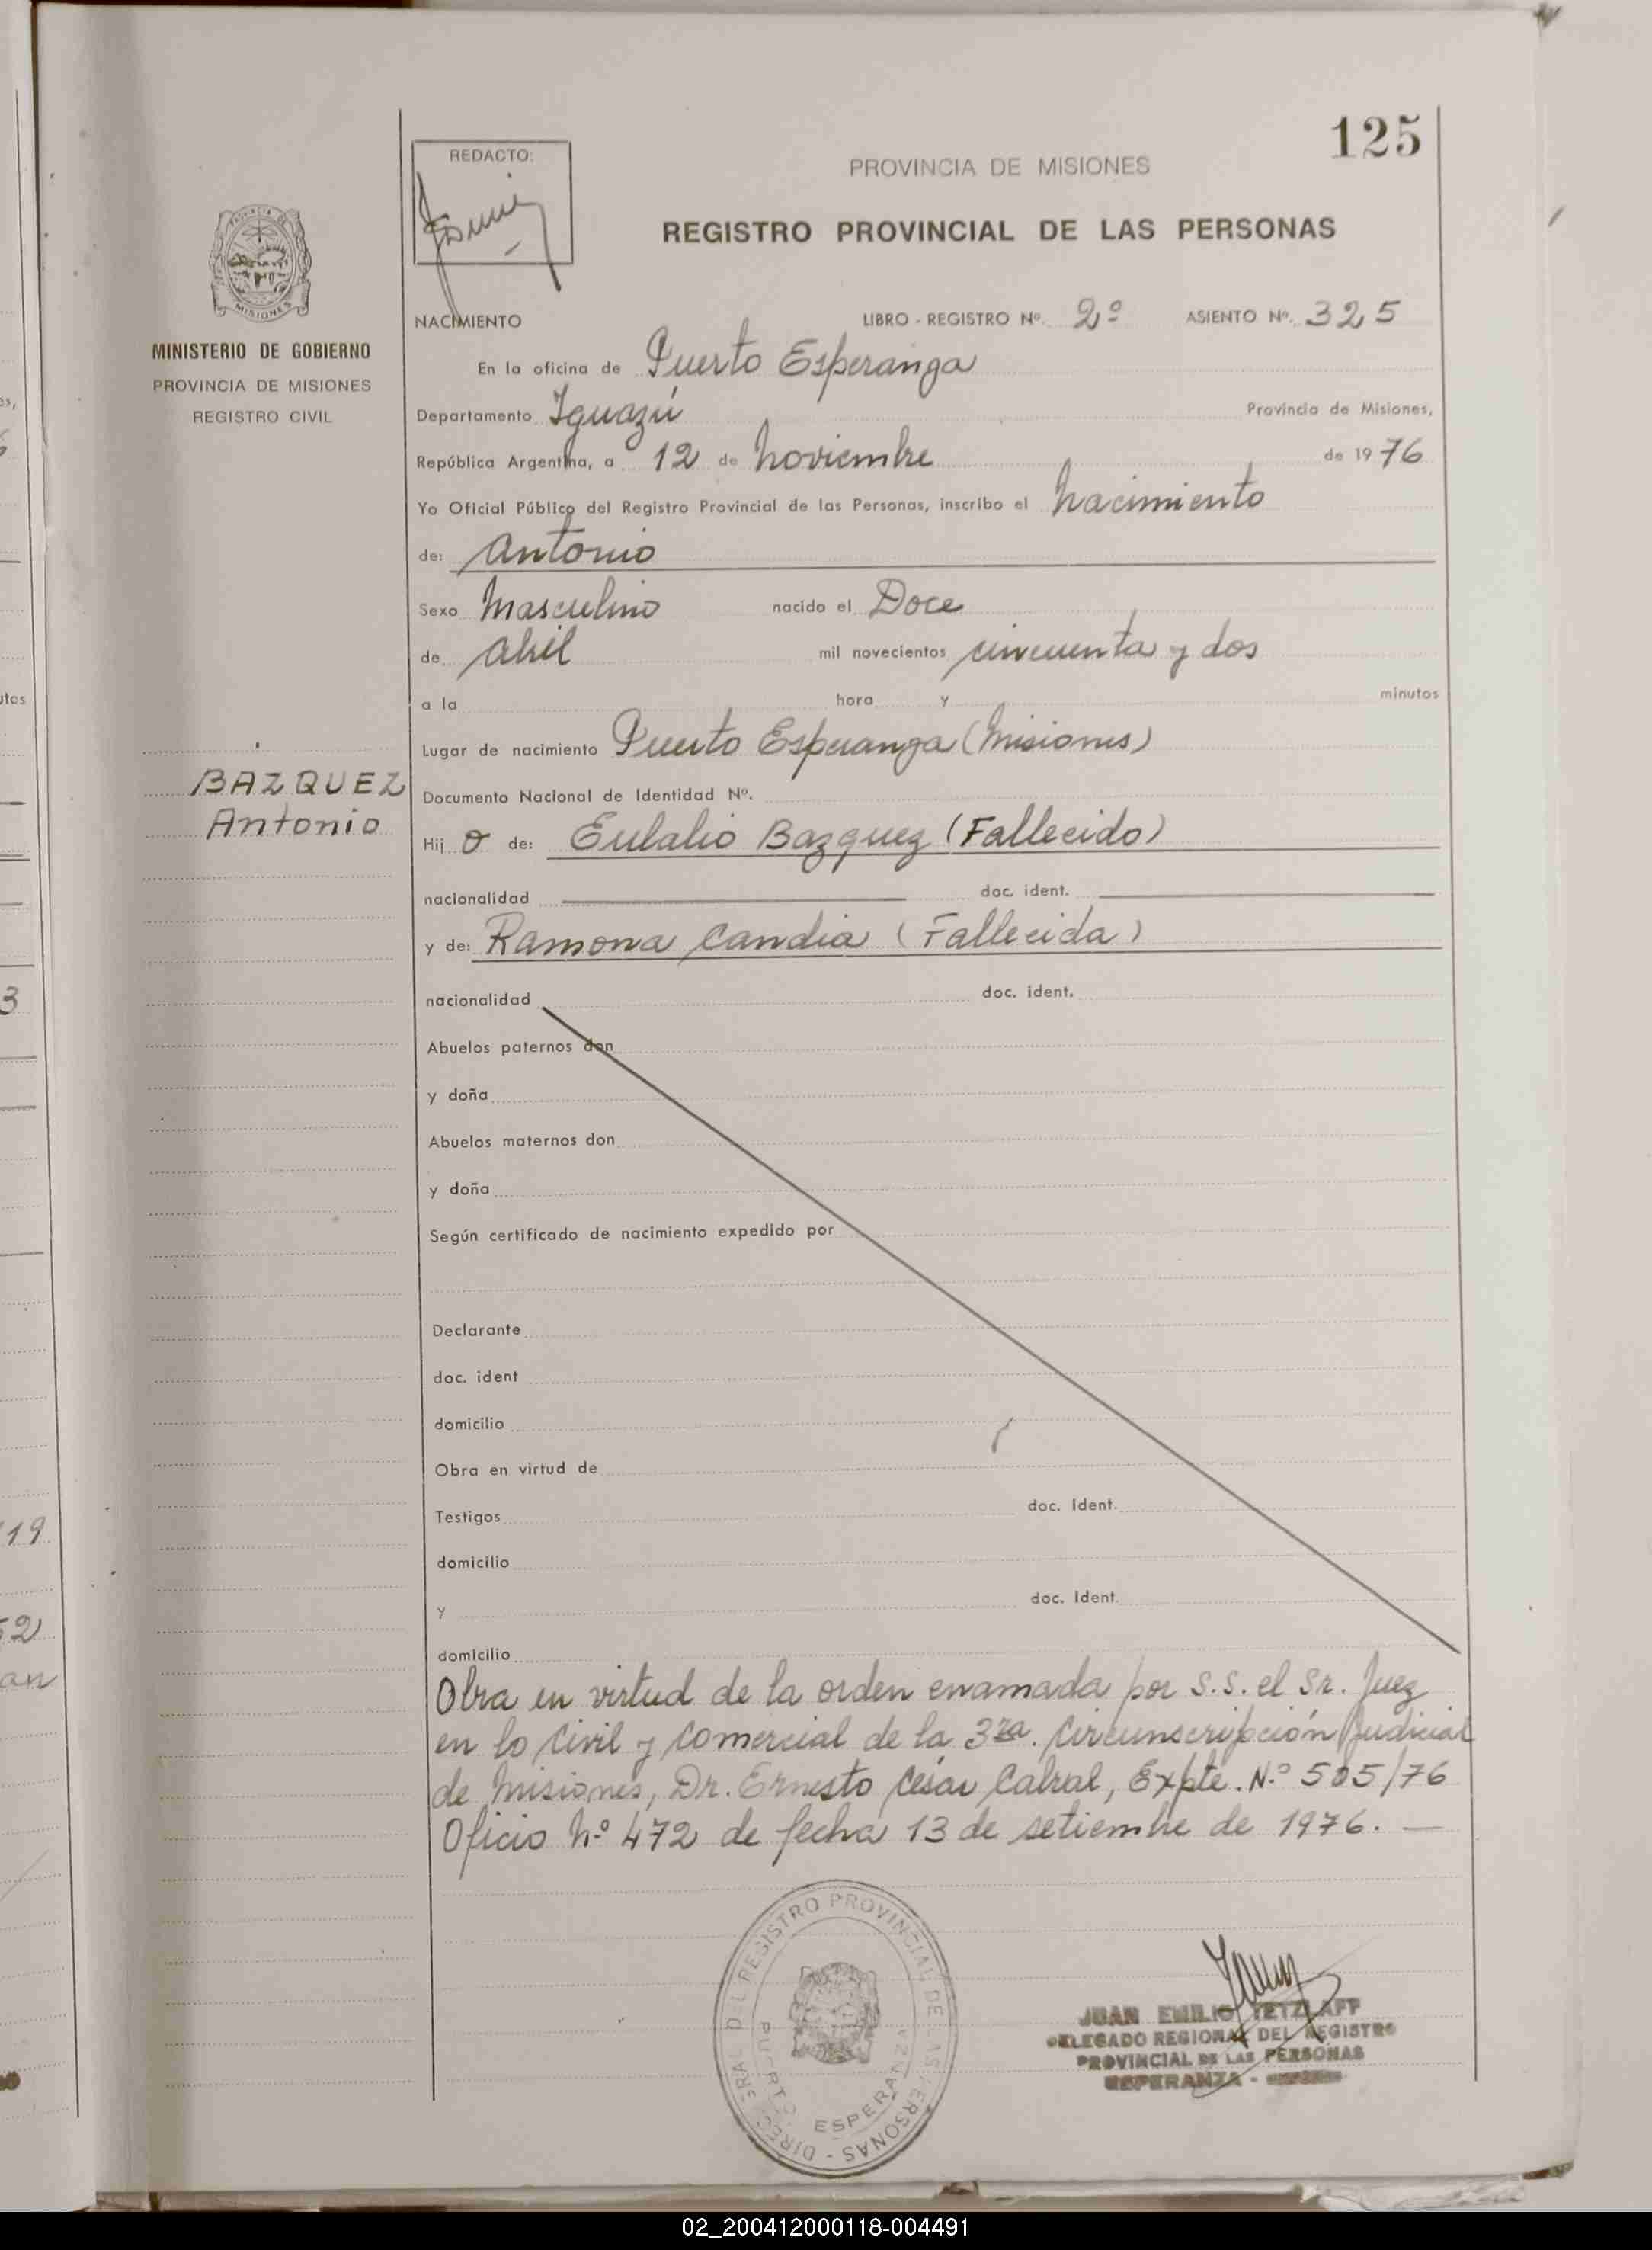 125
REDACTO:
PROVINCIA DE MISIONES
REGISTRO PROVINCIAL DE LAS PERSONAS
MISIONES
MINISTERIO DE GOBIERNO
PROVINCIA DE MISIONES
REGISTRO CIVIL
NACIMIENTO LIBRO - REGISTRO Nº. 2º ASIENTO Nº. 325
En la oficina de Puerto Esperanza
Departamento Iguazú Provincia de Misiones,
República Argentina, a 12 de Noviembre de 1976
Yo Oficial Público del Registro Provincial de las Personas, inscribo el Nacimiento
de: Antonio
Sexo Masculino nacido el Doce
de Abril mil novecientos cincuenta y dos
a la hora y minutos
Lugar de nacimiento Puerto Esperanza (Misiones)
BAZQUEZ
Antonio
Documento Nacional de Identidad Nº.
Hij o de: Eulalio Bazquez (Fallecido)
nacionalidad doc. ident.
y de: Ramona Candia (Fallecida)
nacionalidad doc. ident.
Abuelos paternos don
y doña
Abuelos maternos don
y doña
Según certificado de nacimiento expedido por
Declarante
doc. ident
domicilio
Obra en virtud de
Testigos doc. ident.
domicilio
y doc. Ident.
domicilio
Obra en virtud de la orden enamada por S.S. el Sr. Juez
en lo Civil y Comercial de la 3ra. Circunscripción Judicial
de Misiones, Dr. Ernesto César Cabral, Expte. N.º 505/76
Oficio N.º 472 de fecha 13 de setiembre de 1976. —
DEL REGISTRO PROVINCIAL DE LAS PERSONAS
PUERTO ESPERANZA
JUAN EMILIO TETZLAFF
DELEGADO REGIONAL DEL REGISTRO
PROVINCIAL DE LAS PERSONAS
ESPERANZA -
02_200412000118-004491